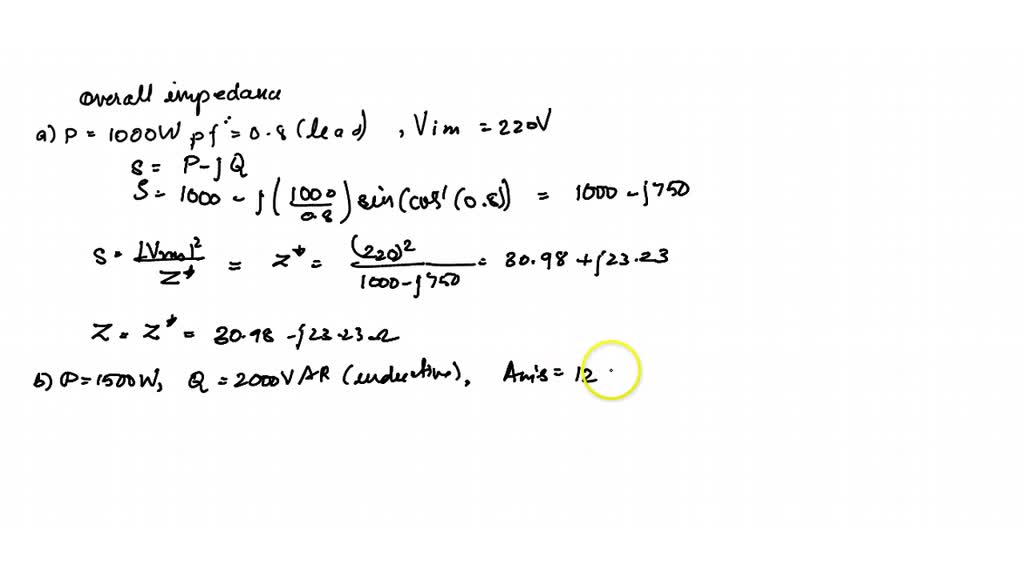 overall impedance
a) P = 1000W pf = 0.8 (lead) , Vim = 220V
S = P - jQ
S = 1000 - j (1000/0.8) sin(cos'(0.8)) = 1000 - j750
S = |Vrms|²/Z* = Z* = (220)²/1000-j750 = 30.98 + j23.23
Z = Z* = 30.98 - j23.23 Ω
b) P = 1500W, Q = 2000VAR (inductive), Amis = 12